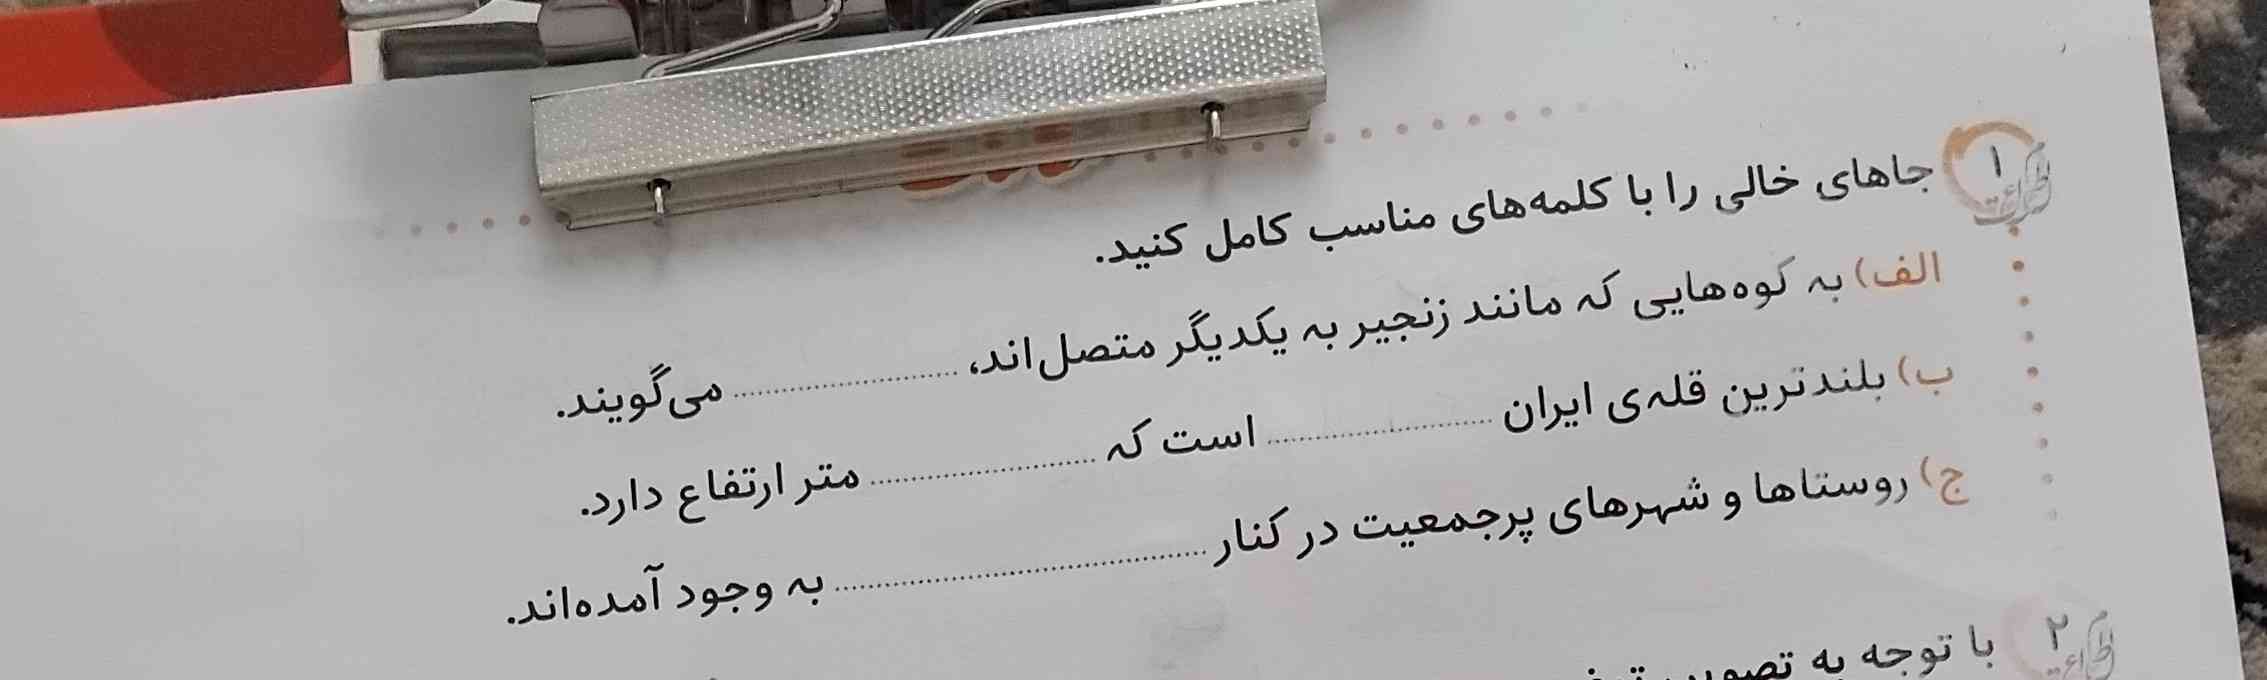 ۱ جاهای خالی را با کلمه‌های مناسب کامل کنید.
الف) به کوه‌هایی که مانند زنجیر به یکدیگر متصل‌اند، .................... می‌گویند.
ب) بلندترین قله‌ی ایران .................... است که .................... متر ارتفاع دارد.
ج) روستاها و شهرهای پرجمعیت در کنار .................... به وجود آمده‌اند.
۲ با توجه به